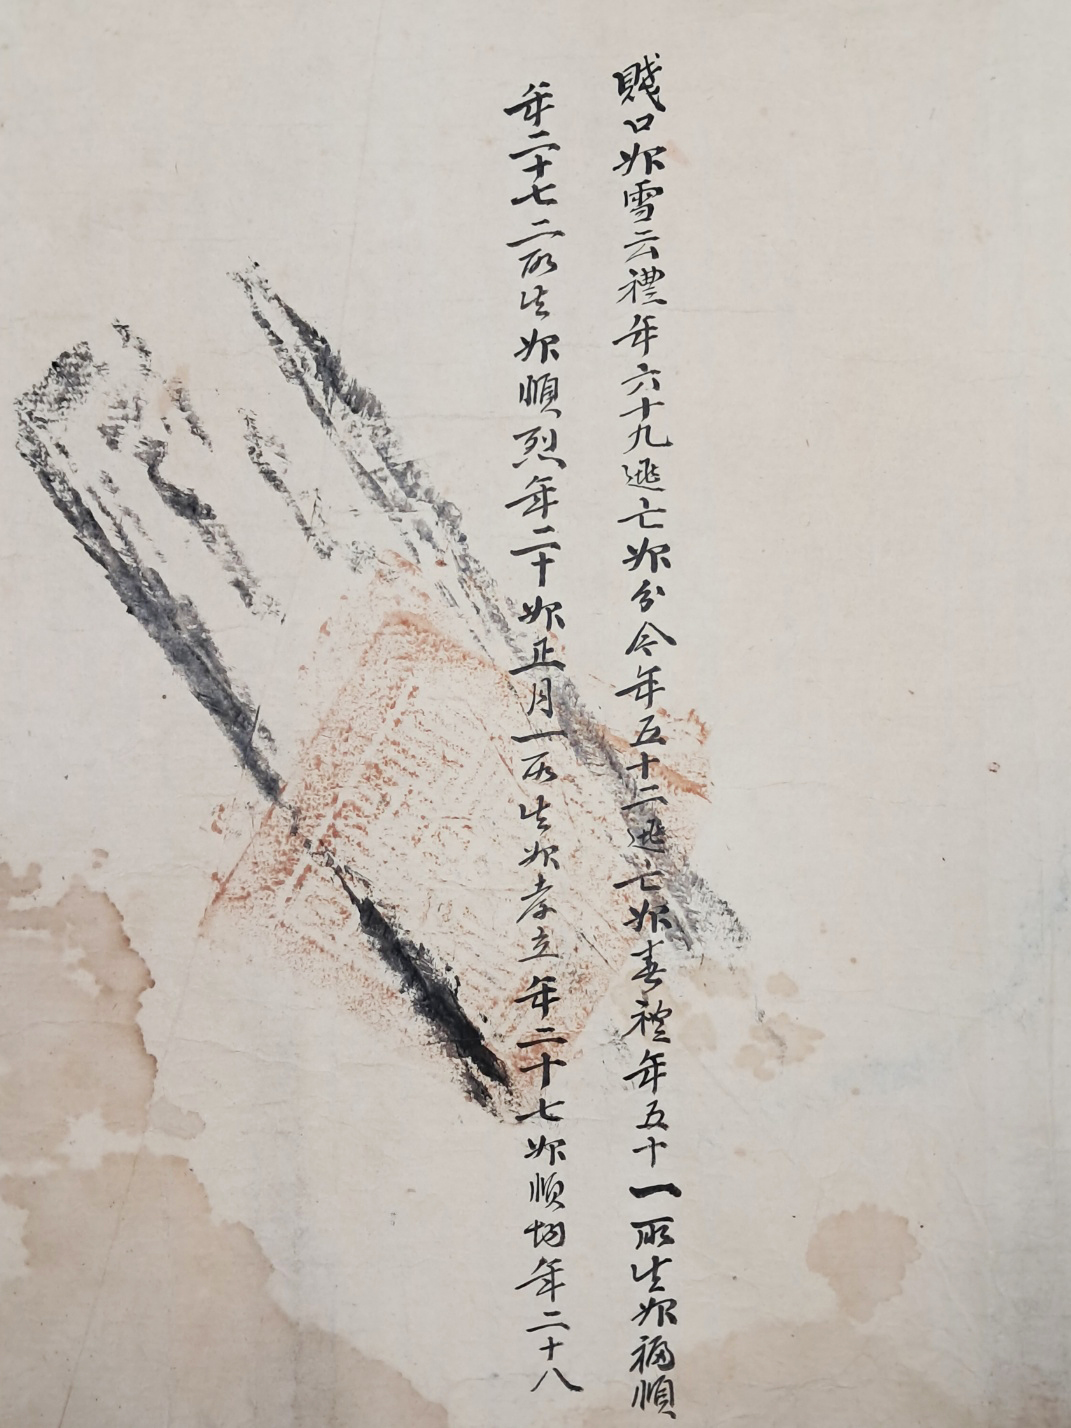 賤口婢雪云禮年六十九逃亡婢分今年五十二逃亡婢春禮年五十一所生婢福順
年二十七二所生婢順烈年二十婢正月一所生婢孝立年二十七婢順均年二十八